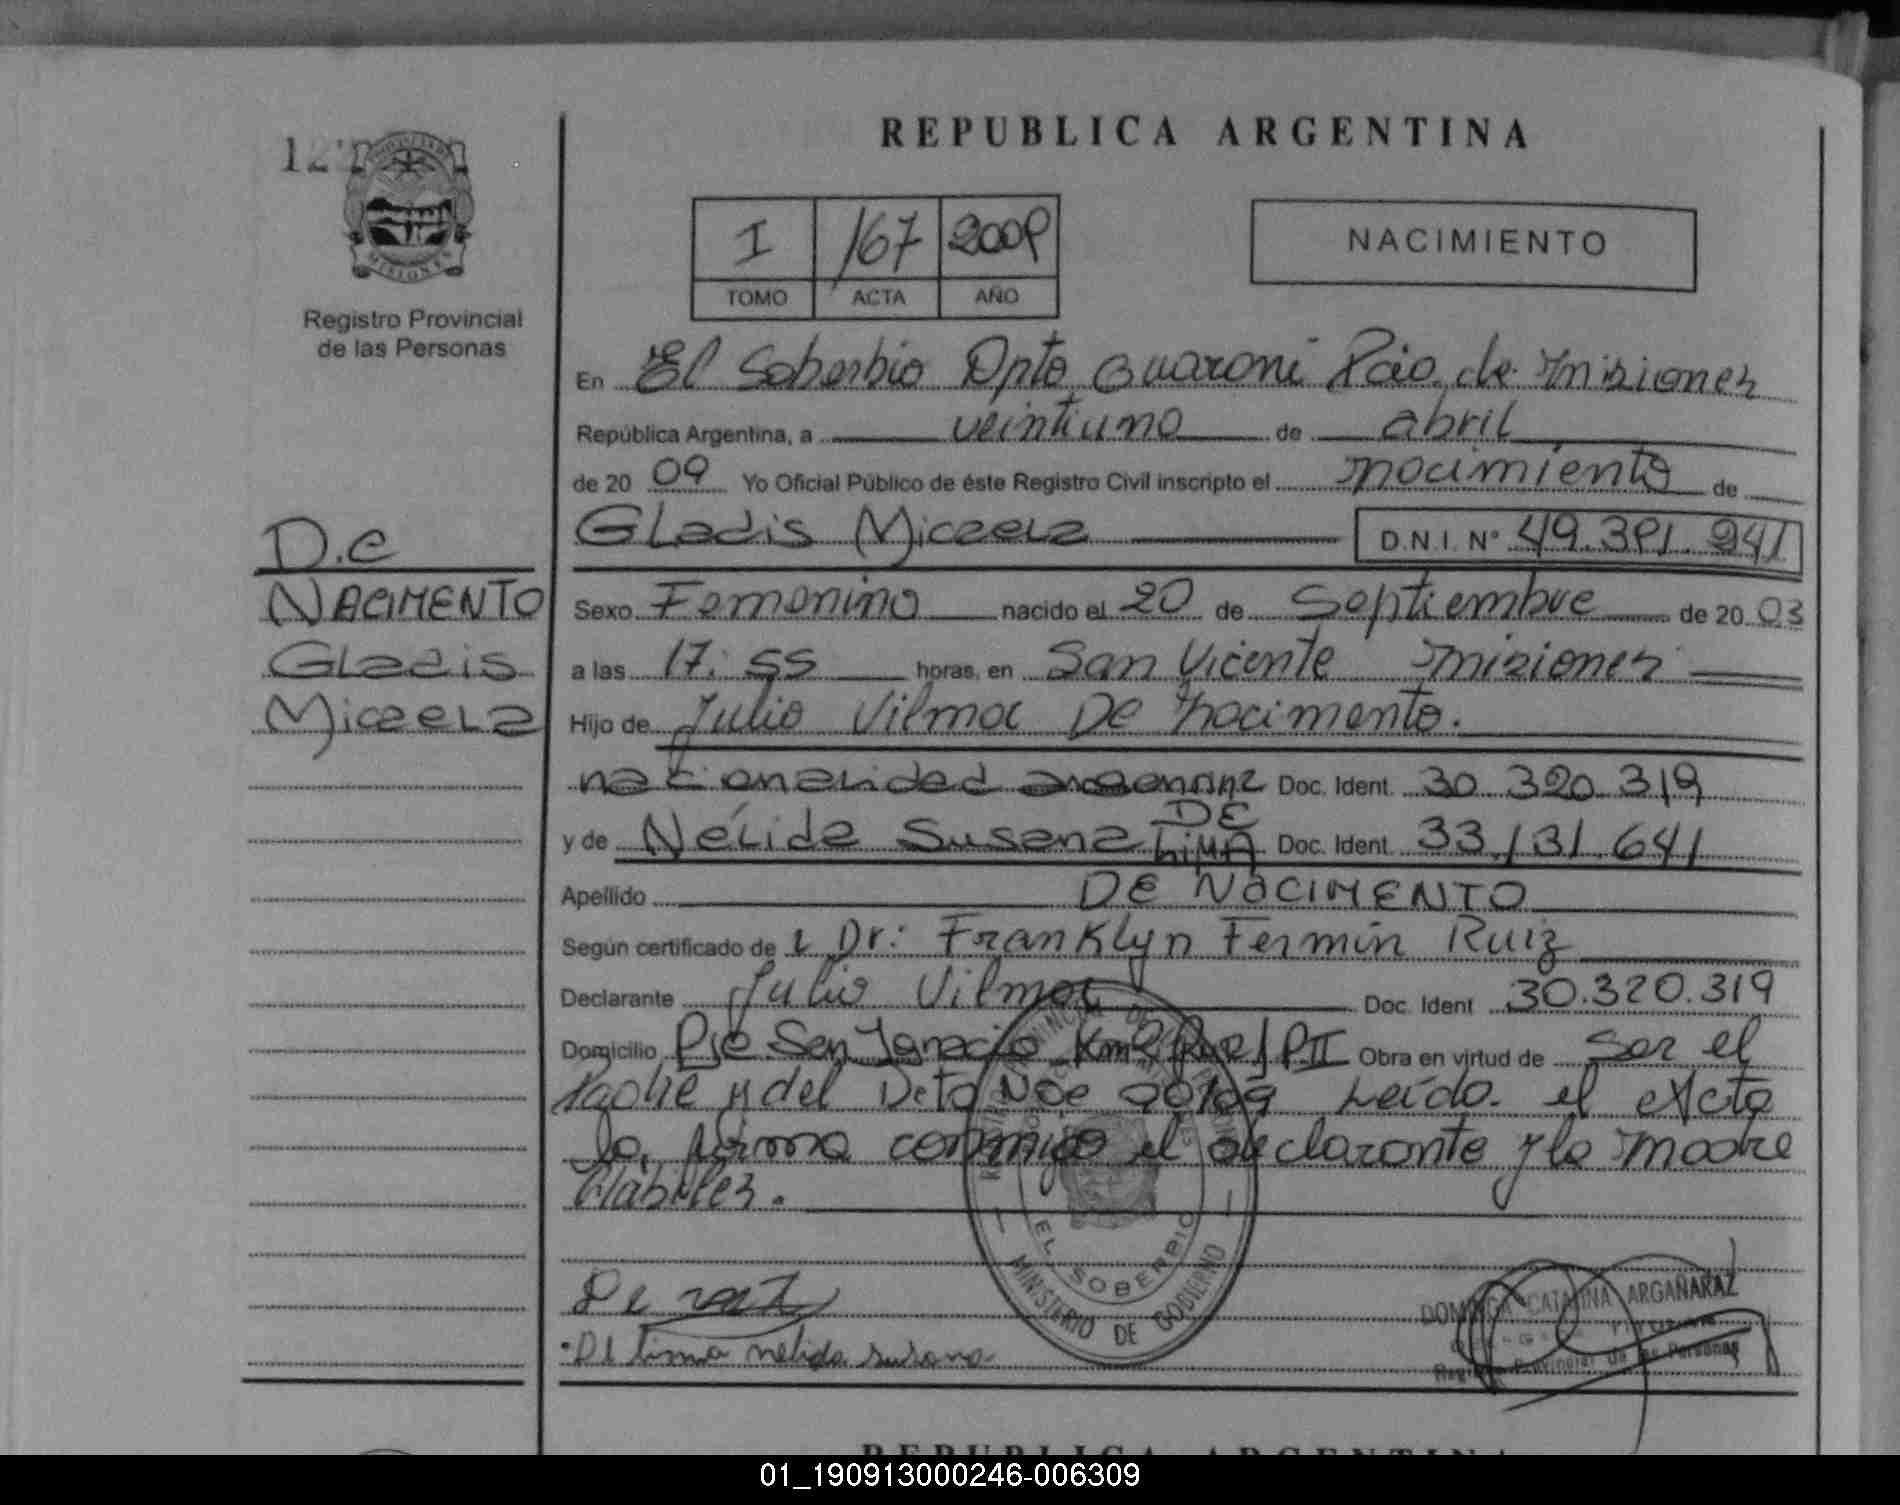 REPUBLICA ARGENTINA
MISIONES
Registro Provincial
de las Personas
I 167 2009
TOMO ACTA AÑO
NACIMIENTO
En El Soberbio Dpto Guarani Pcia. de Misiones
República Argentina, a veintiuno de abril
de 20 09 Yo Oficial Público de éste Registro Civil inscripto el nacimiento de
Gladis Micaela D.N.I. N° 49.391.941
De
NACIMENTO
Gladis
Micaela
Sexo Femenino nacido el 20 de Septiembre de 20 03
a las 17:55 horas, en San Vicente Misiones
Hijo de Julio Vilmar De Nacimento.
nacionalidad argentina Doc. Ident. 30 320 319
y de Nélida Susana DE LIMA Doc. Ident. 33.131.641
Apellido DE NACIMENTO
Según certificado de l Dr: Franklyn Fermin Ruiz
Declarante Julio Vilmar Doc. Ident 30.320.319
Domicilio Pje San Ignacio Km Obra en virtud de ser el
Padre y del Dcto Leída el acta
la firma conmigo el declarante y la madre
Habiles.
EL SOBERBIO
MINISTERIO DE GOBIERNO
De Lima nelida susana
DOMINGA CATALINA ARGAÑARAZ
TITULAR
Registro Provincial de las Personas
REPUBLICA ARGENTINA
01_190913000246-006309